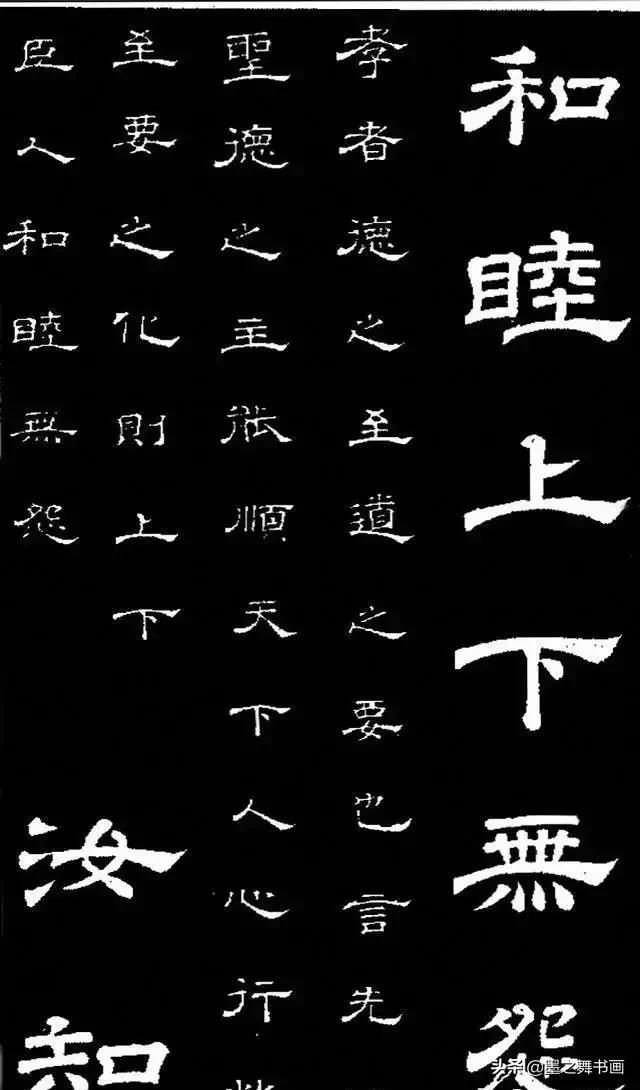 和睦上下無怨
孝者德之至道之要也言先
聖德之主能順天下人心行
至要之化則上下
臣人和睦無怨
汝知
头条 @墨之舞书画